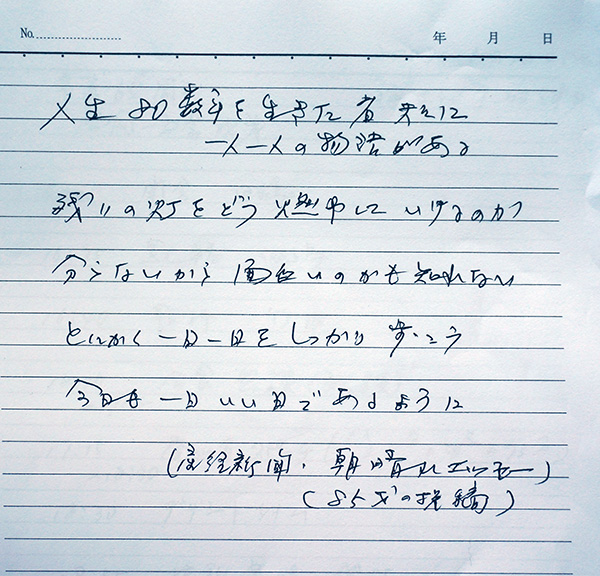 No.
年 月 日
人生80数年を生きた者夫々に
一人一人の物語がある
残りの灯をどう燃やしていけるのか
分らないから面白いのかも知れない
とにかく一日一日をしっかり歩こう
今日も一日いい日であるように
(産経新聞、朝晴れエッセー)
(85才の投稿)